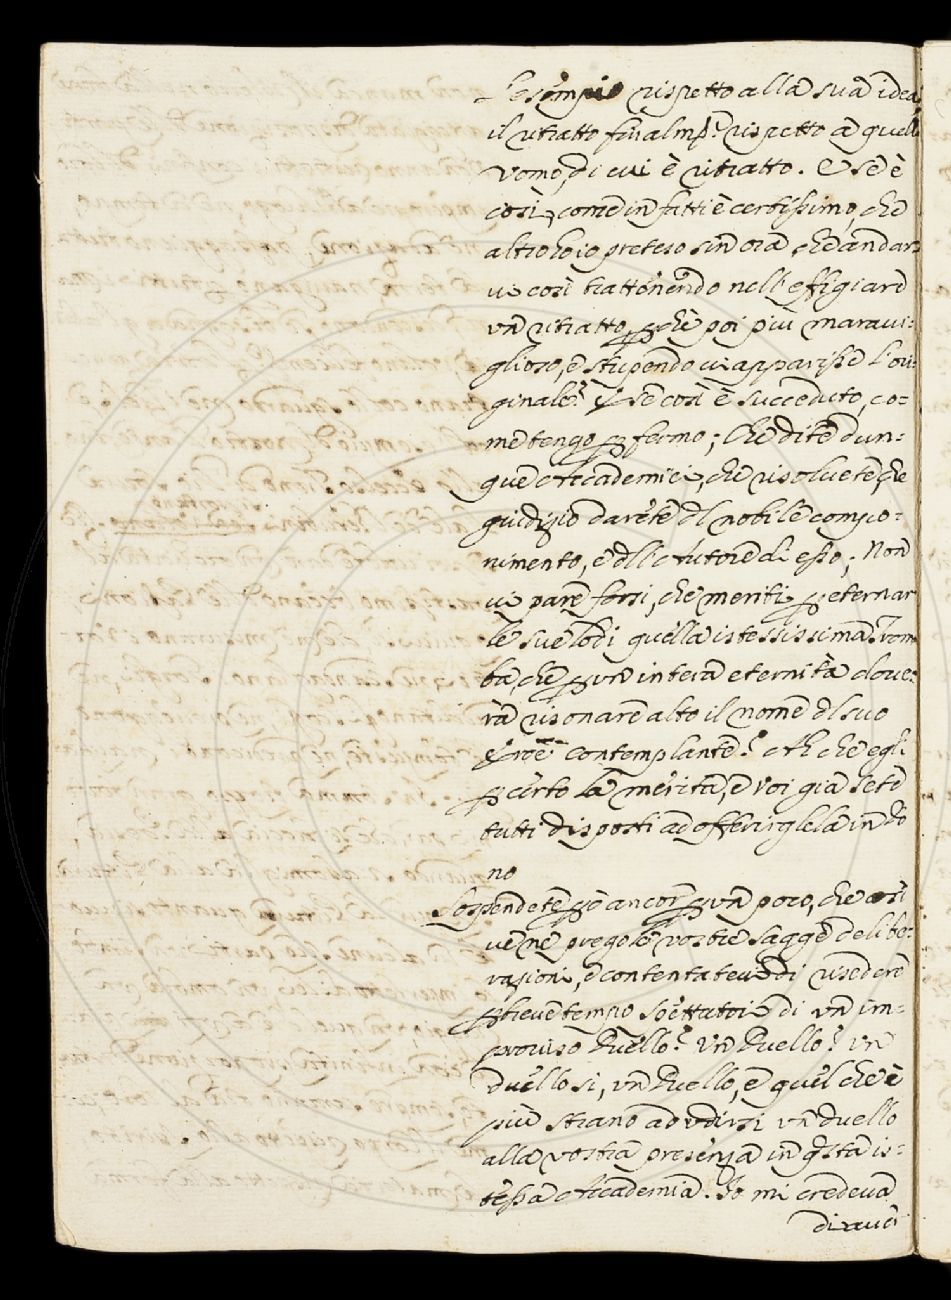 l'esempio rispetto alla sua idea,
il ritratto finalmte rispetto a quell
vomo, di cui è ritratto. E se è
così, come in fatti è certissimo, che
altro ho io preteso sin ora, che andar
vi così trattenendo nell'effigiare
vn ritratto, perchè poi più maravi-
glioso, e stupendo vi apparisse l'ori-
ginale? E se così è succeduto, co-
me tengo per fermo; Che dite dun-
que Accademici, che risolvete, che
giudizio darete del nobile compo-
nimento, e dell'Autore di esso; Non
vi pare forsi, che meriti per eternar
le sue lodi quella istessissima Trom
ba, che per vn intera eternità dove-
rà risonare alto il nome del suo
Eroe contemplante? Ah che egli
per certo la merita, e voi già sete
tutti disposti ad offerirglela in do
no
Sospendete però ancor per vn poco, che così
ve ne prego le vostre sagge delibe-
razioni, e contentatevi di risedere
per breve tempo spettatori di vn im-
proviso Duello? Vn Duello? Vn
duello si, vn Duello, e quel che è
più strano ad vdirsi vn duello
alla vostra presenza in qsta is-
tessa Accademia. Io mi credeva
di aver